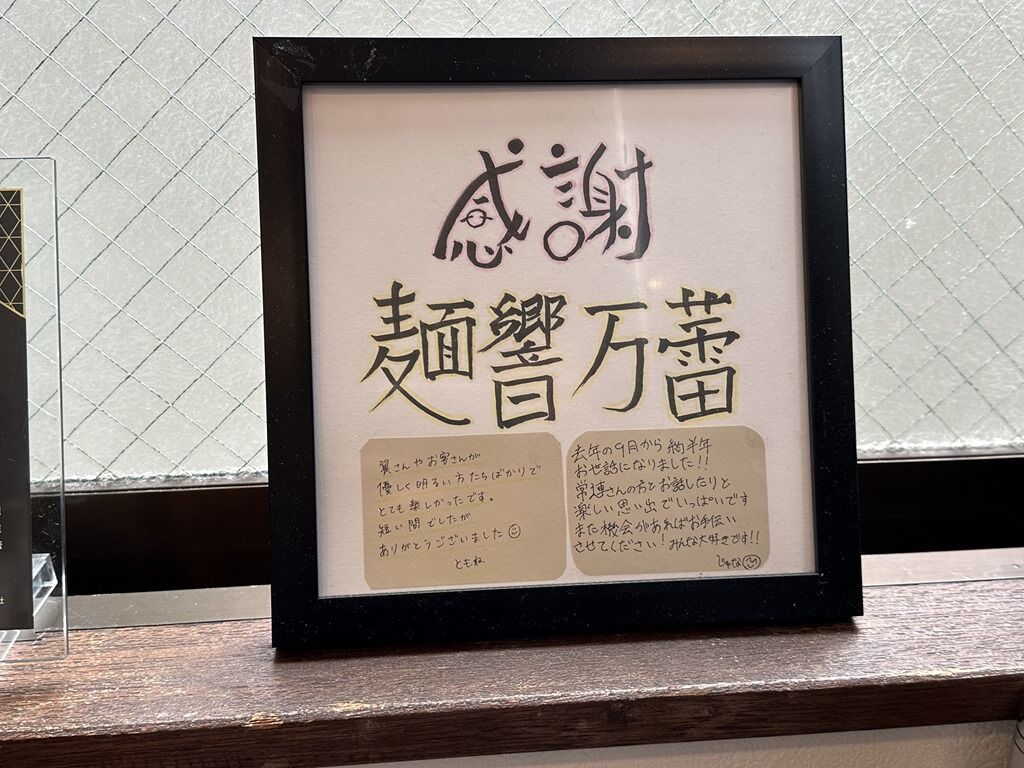 感謝
麺響万蕾
翼さんやお客さんが
優しく明るい方たちばかりで
とても楽しかったです。
短い間でしたが
ありがとうございました
ともね
去年の9月から約半年
お世話になりました!!
常連さんの方とお話したりと
楽しい思い出でいっぱいです
また機会があればお手伝い
させてください!みんな大好きです!!